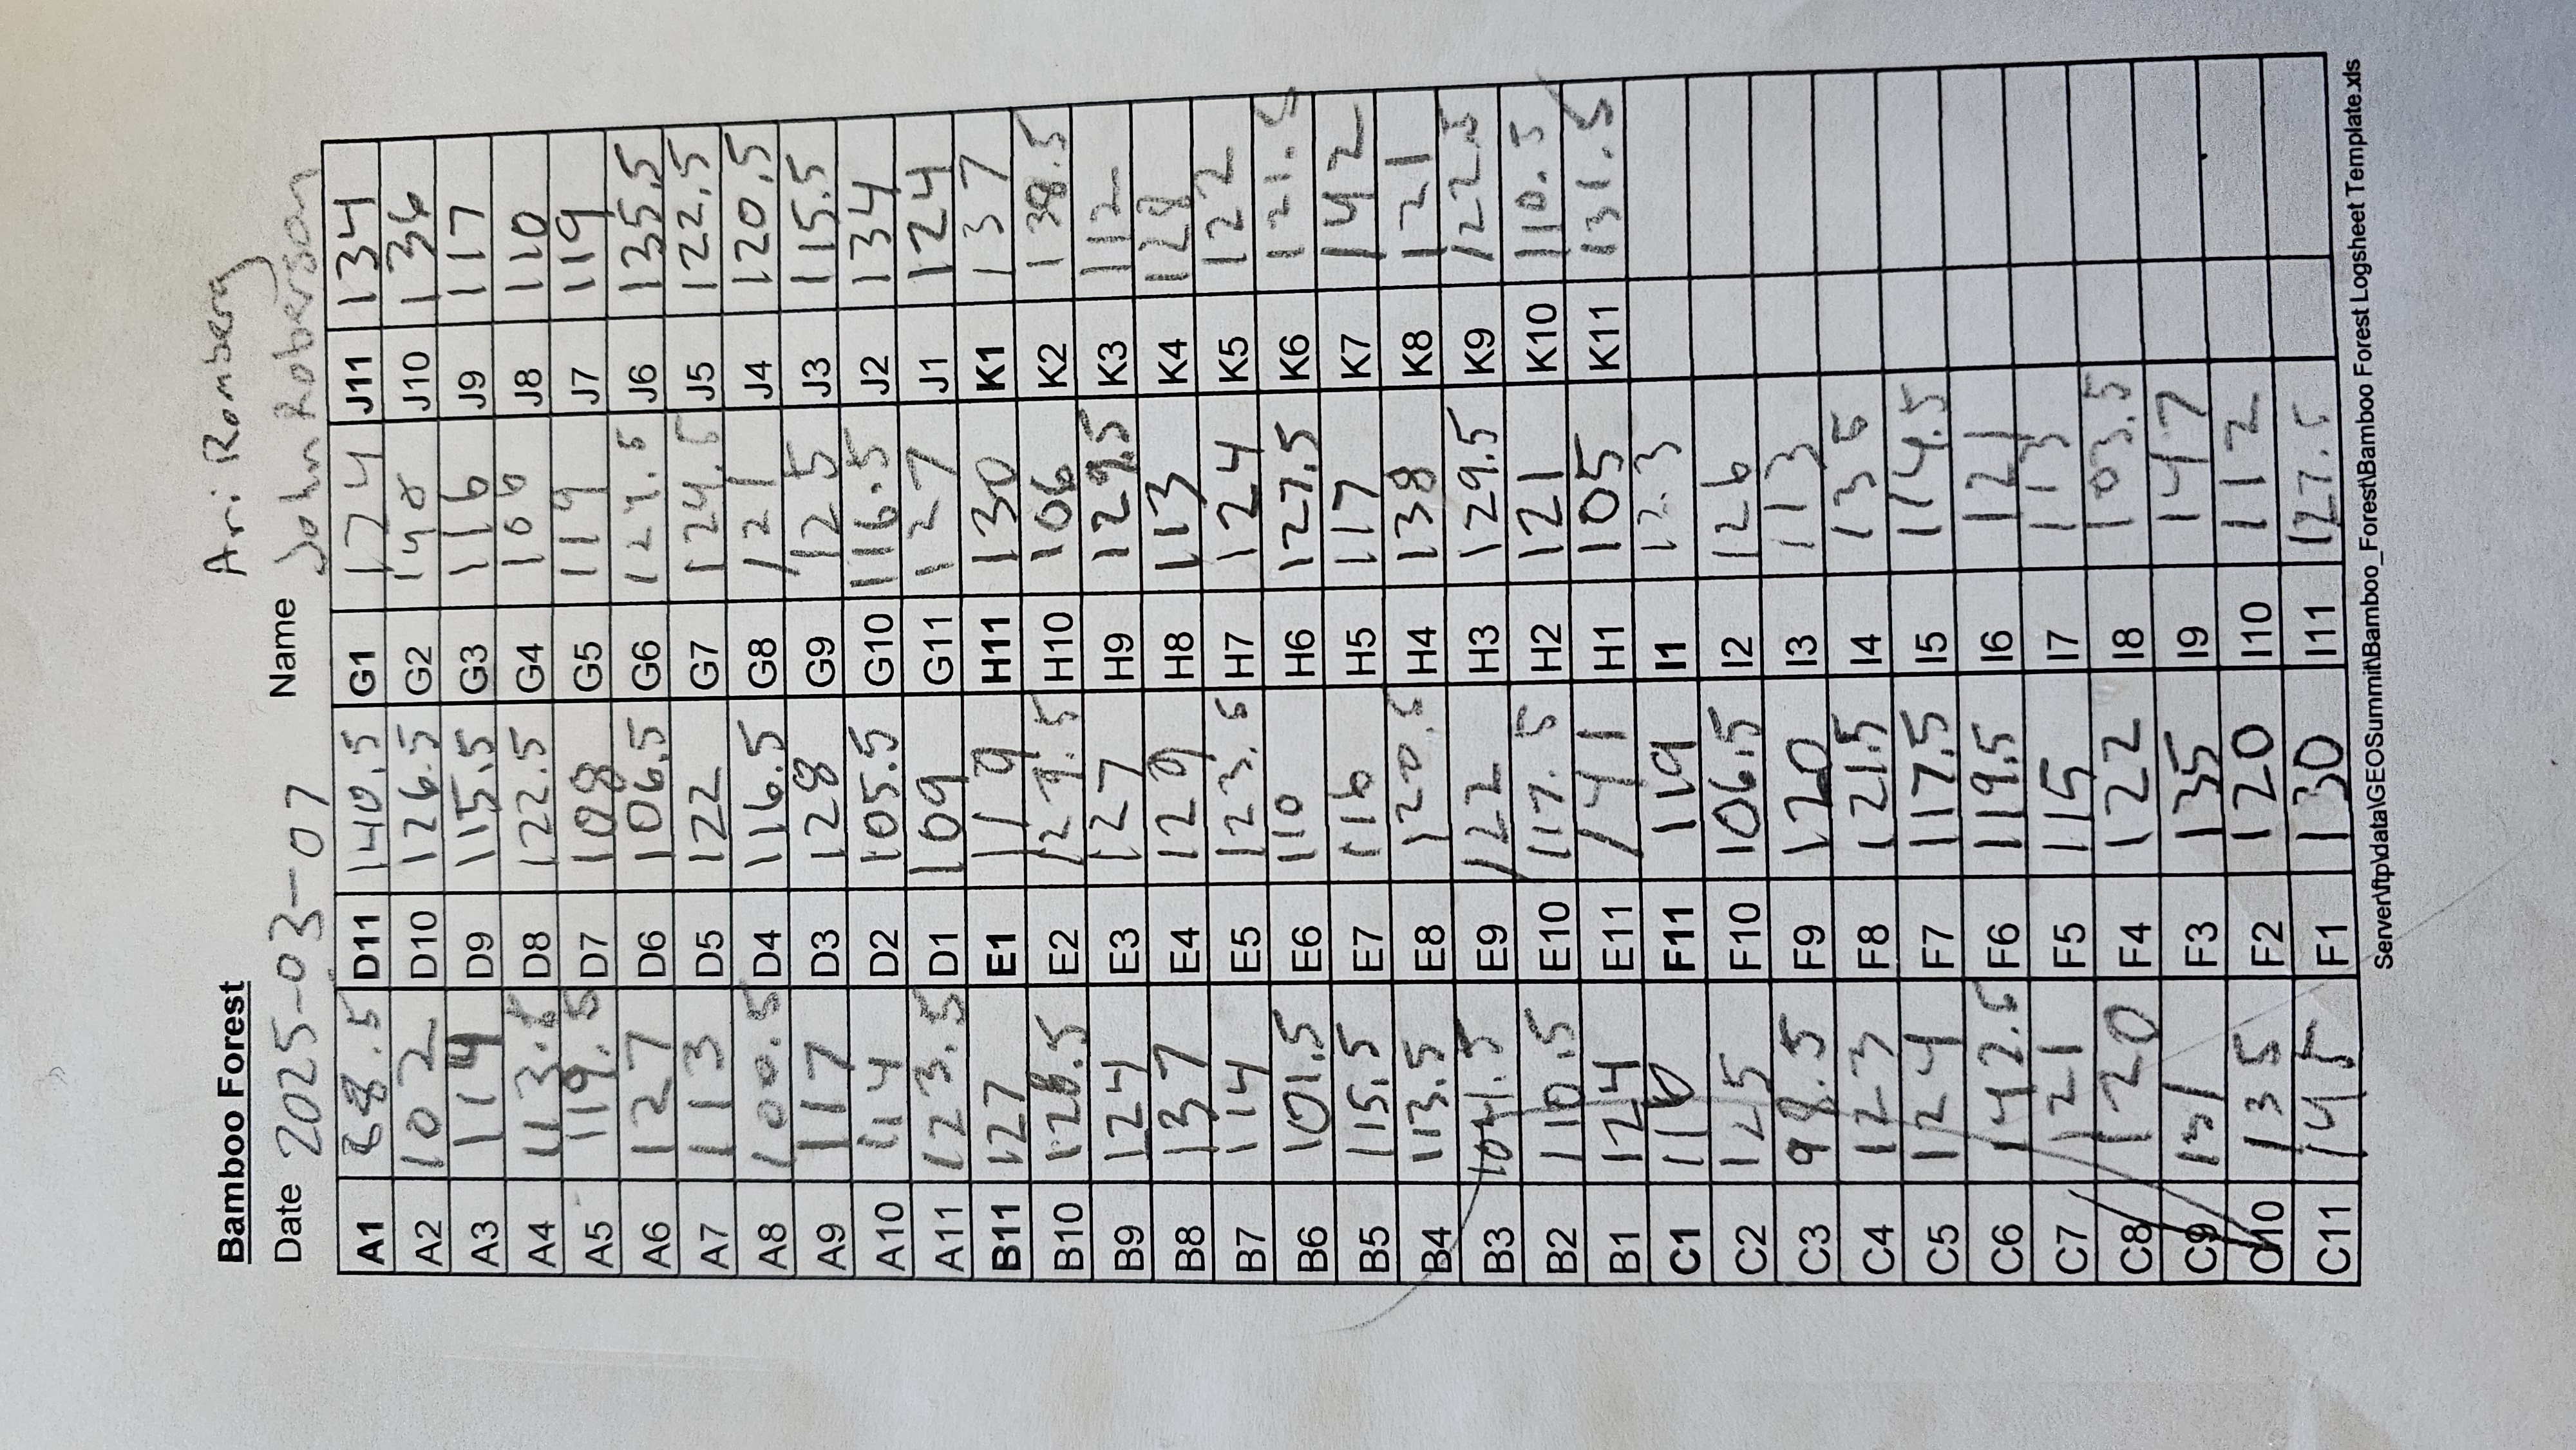 Bamboo Forest
Ari Romberg
Date 2025-03-07 Name John Roberson
A1 88.5 D11 140.5 G1 124 J11 134
A2 102 D10 126.5 G2 140 J10 136
A3 114 D9 115.5 G3 116 J9 117
A4 113.5 D8 122.5 G4 100 J8 110
A5 119.5 D7 108 G5 119 J7 119
A6 127 D6 106.5 G6 121.5 J6 135.5
A7 113 D5 122 G7 124.5 J5 122.5
A8 100.5 D4 116.5 G8 121 J4 120.5
A9 117 D3 128 G9 125 J3 115.5
A10 114 D2 105.5 G10 116.5 J2 134
A11 123.5 D1 109 G11 127 J1 124
B11 127 E1 119 H11 130 K1 137
B10 128.5 E2 127.5 H10 106 K2 138.5
B9 124 E3 127 H9 129.5 K3 112
B8 137 E4 129 H8 113 K4 128
B7 114 E5 123.5 H7 124 K5 122
B6 101.5 E6 110 H6 127.5 K6 121.5
B5 115.5 E7 116 H5 117 K7 142
B4 113.5 E8 120.5 H4 138 K8 121
B3 104.5 E9 122 H3 129.5 K9 122.5
B2 110.5 E10 117.5 H2 121 K10 110.5
B1 124 E11 141 H1 105 K11 131.5
C1 110 F11 119 I1 123
C2 125 F10 106.5 I2 126
C3 98.5 F9 120 I3 113
C4 123 F8 121.5 I4 136
C5 124 F7 117.5 I5 114.5
C6 142.5 F6 119.5 I6 121
C7 121 F5 115 I7 113
C8 120 F4 122 I8 103.5
C9 131 F3 135 I9 147
C10 135 F2 120 I10 112
C11 145 F1 130 I11 127.5
Server\ftp\data\GEOSummit\Bamboo_Forest\Bamboo Forest Logsheet Template.xls